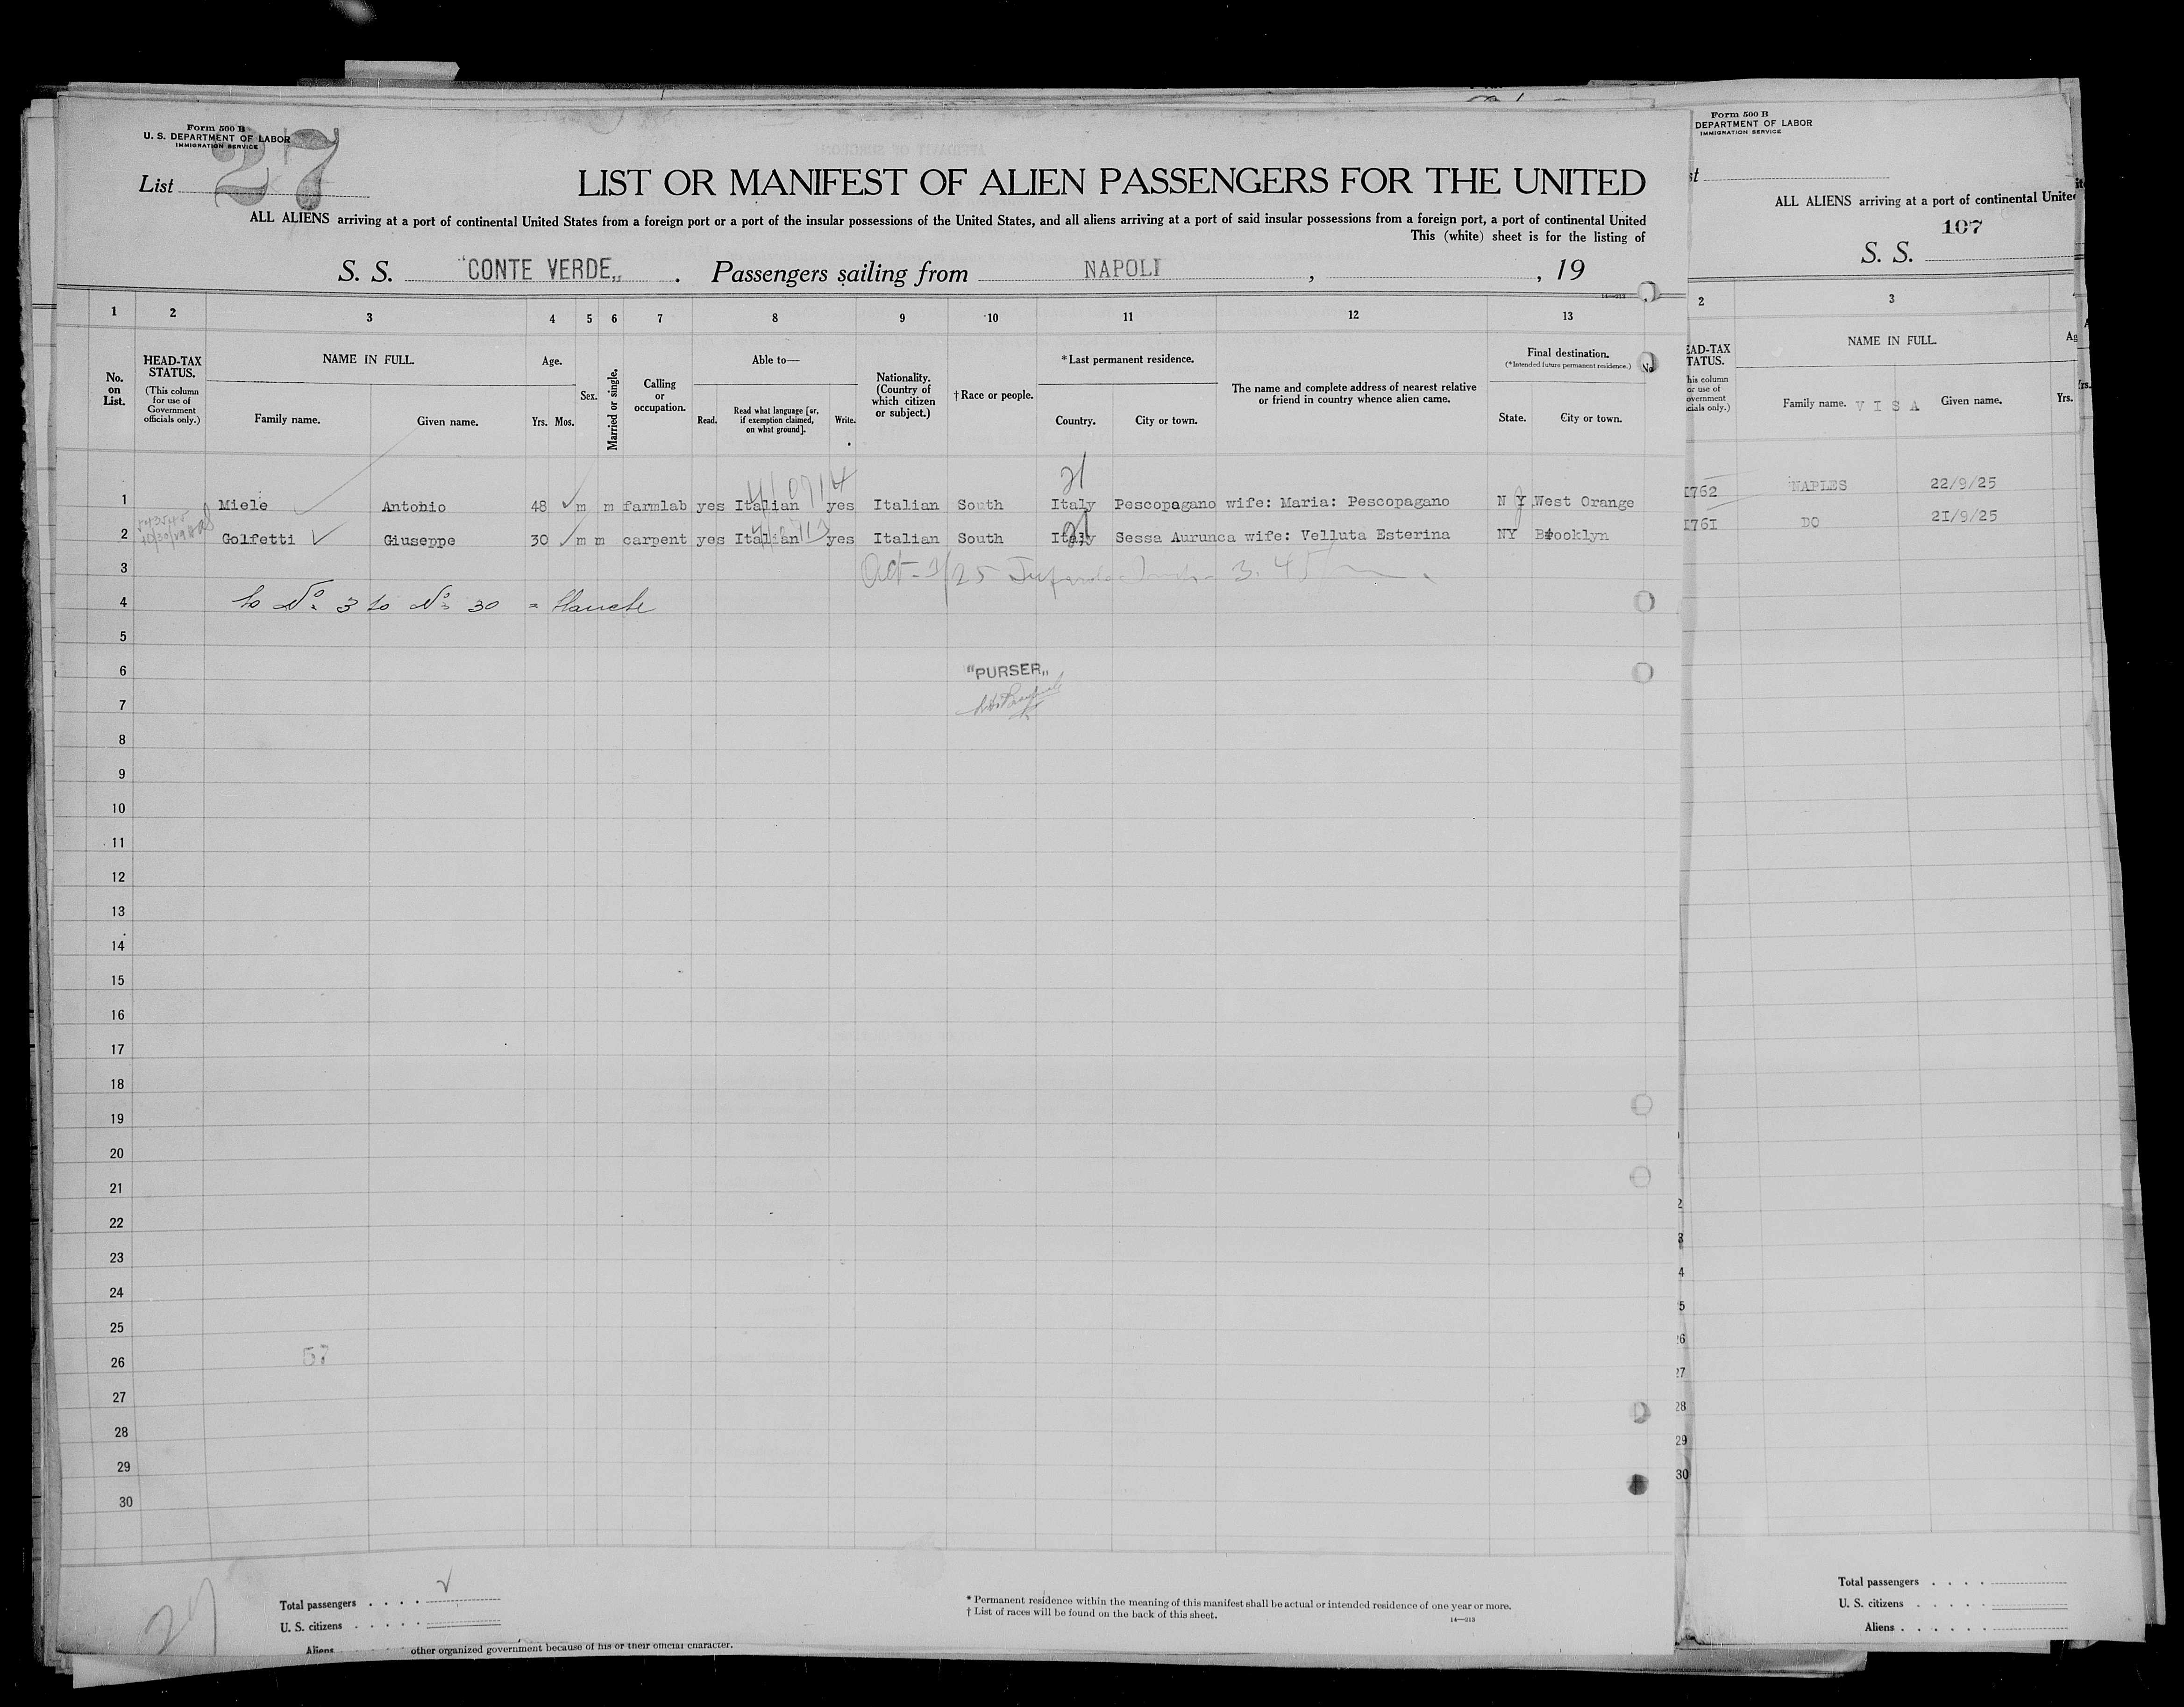 Form 500 B
U. S. DEPARTMENT OF LABOR
IMMIGRATION SERVICE
27
List
LIST OR MANIFEST OF ALIEN PASSENGERS FOR THE UNITED
ALL ALIENS arriving at a port of continental United States from a foreign port or a port of the insular possessions of the United States, and all aliens arriving at a port of said insular possessions from a foreign port, a port of continental United
This (white) sheet is for the listing of
S. S. "CONTE VERDE„ . Passengers sailing from NAPOLI , , 19
14—013
1 2 3 4 5 6 7 8 9 10 11 12 13
No. on List.
HEAD-TAX STATUS.
(This column for use of Government officials only.)
NAME IN FULL.
Family name. Given name.
Age.
Yrs. Mos.
Sex.
Married or single.
Calling or occupation.
Able to—
Read. Read what language [or, if exemption claimed, on what ground]. Write.
Nationality. (Country of which citizen or subject.)
† Race or people.
* Last permanent residence.
Country. City or town.
The name and complete address of nearest relative or friend in country whence alien came.
Final destination.
(* Intended future permanent residence.)
State. City or town.
No
1 Miele Antonio 48 m m farmlab yes Italian yes Italian South Italy Pescopagano wife: Maria: Pescopagano N Y West Orange
2 Golfetti Giuseppe 30 m m carpent yes Italian yes Italian South Italy Sessa Aurunca wife: Velluta Esterina NY Brooklyn
3
4 to No. 3 to No. 30 =
5
6 "PURSER„
7
8
9
10
11
12
13
14
15
16
17
18
19
20
21
22
23
24
25
26 57
27
28
29
30
27
Total passengers
U. S. citizens
Aliens
other organized government because of his or their official character.
* Permanent residence within the meaning of this manifest shall be actual or intended residence of one year or more.
† List of races will be found on the back of this sheet.
14—013
Form 500 B
DEPARTMENT OF LABOR
IMMIGRATION SERVICE
st
ALL ALIENS arriving at a port of continental United
107
S. S.
2 3
EAD-TAX TATUS.
his column or use of overnment cials only.)
NAME IN FULL.
Family name. VISA Given name.
Ag
Yrs.
I762 NAPLES 22/9/25
I76I DO 2I/9/25
28
29
30
Total passengers
U. S. citizens
Aliens